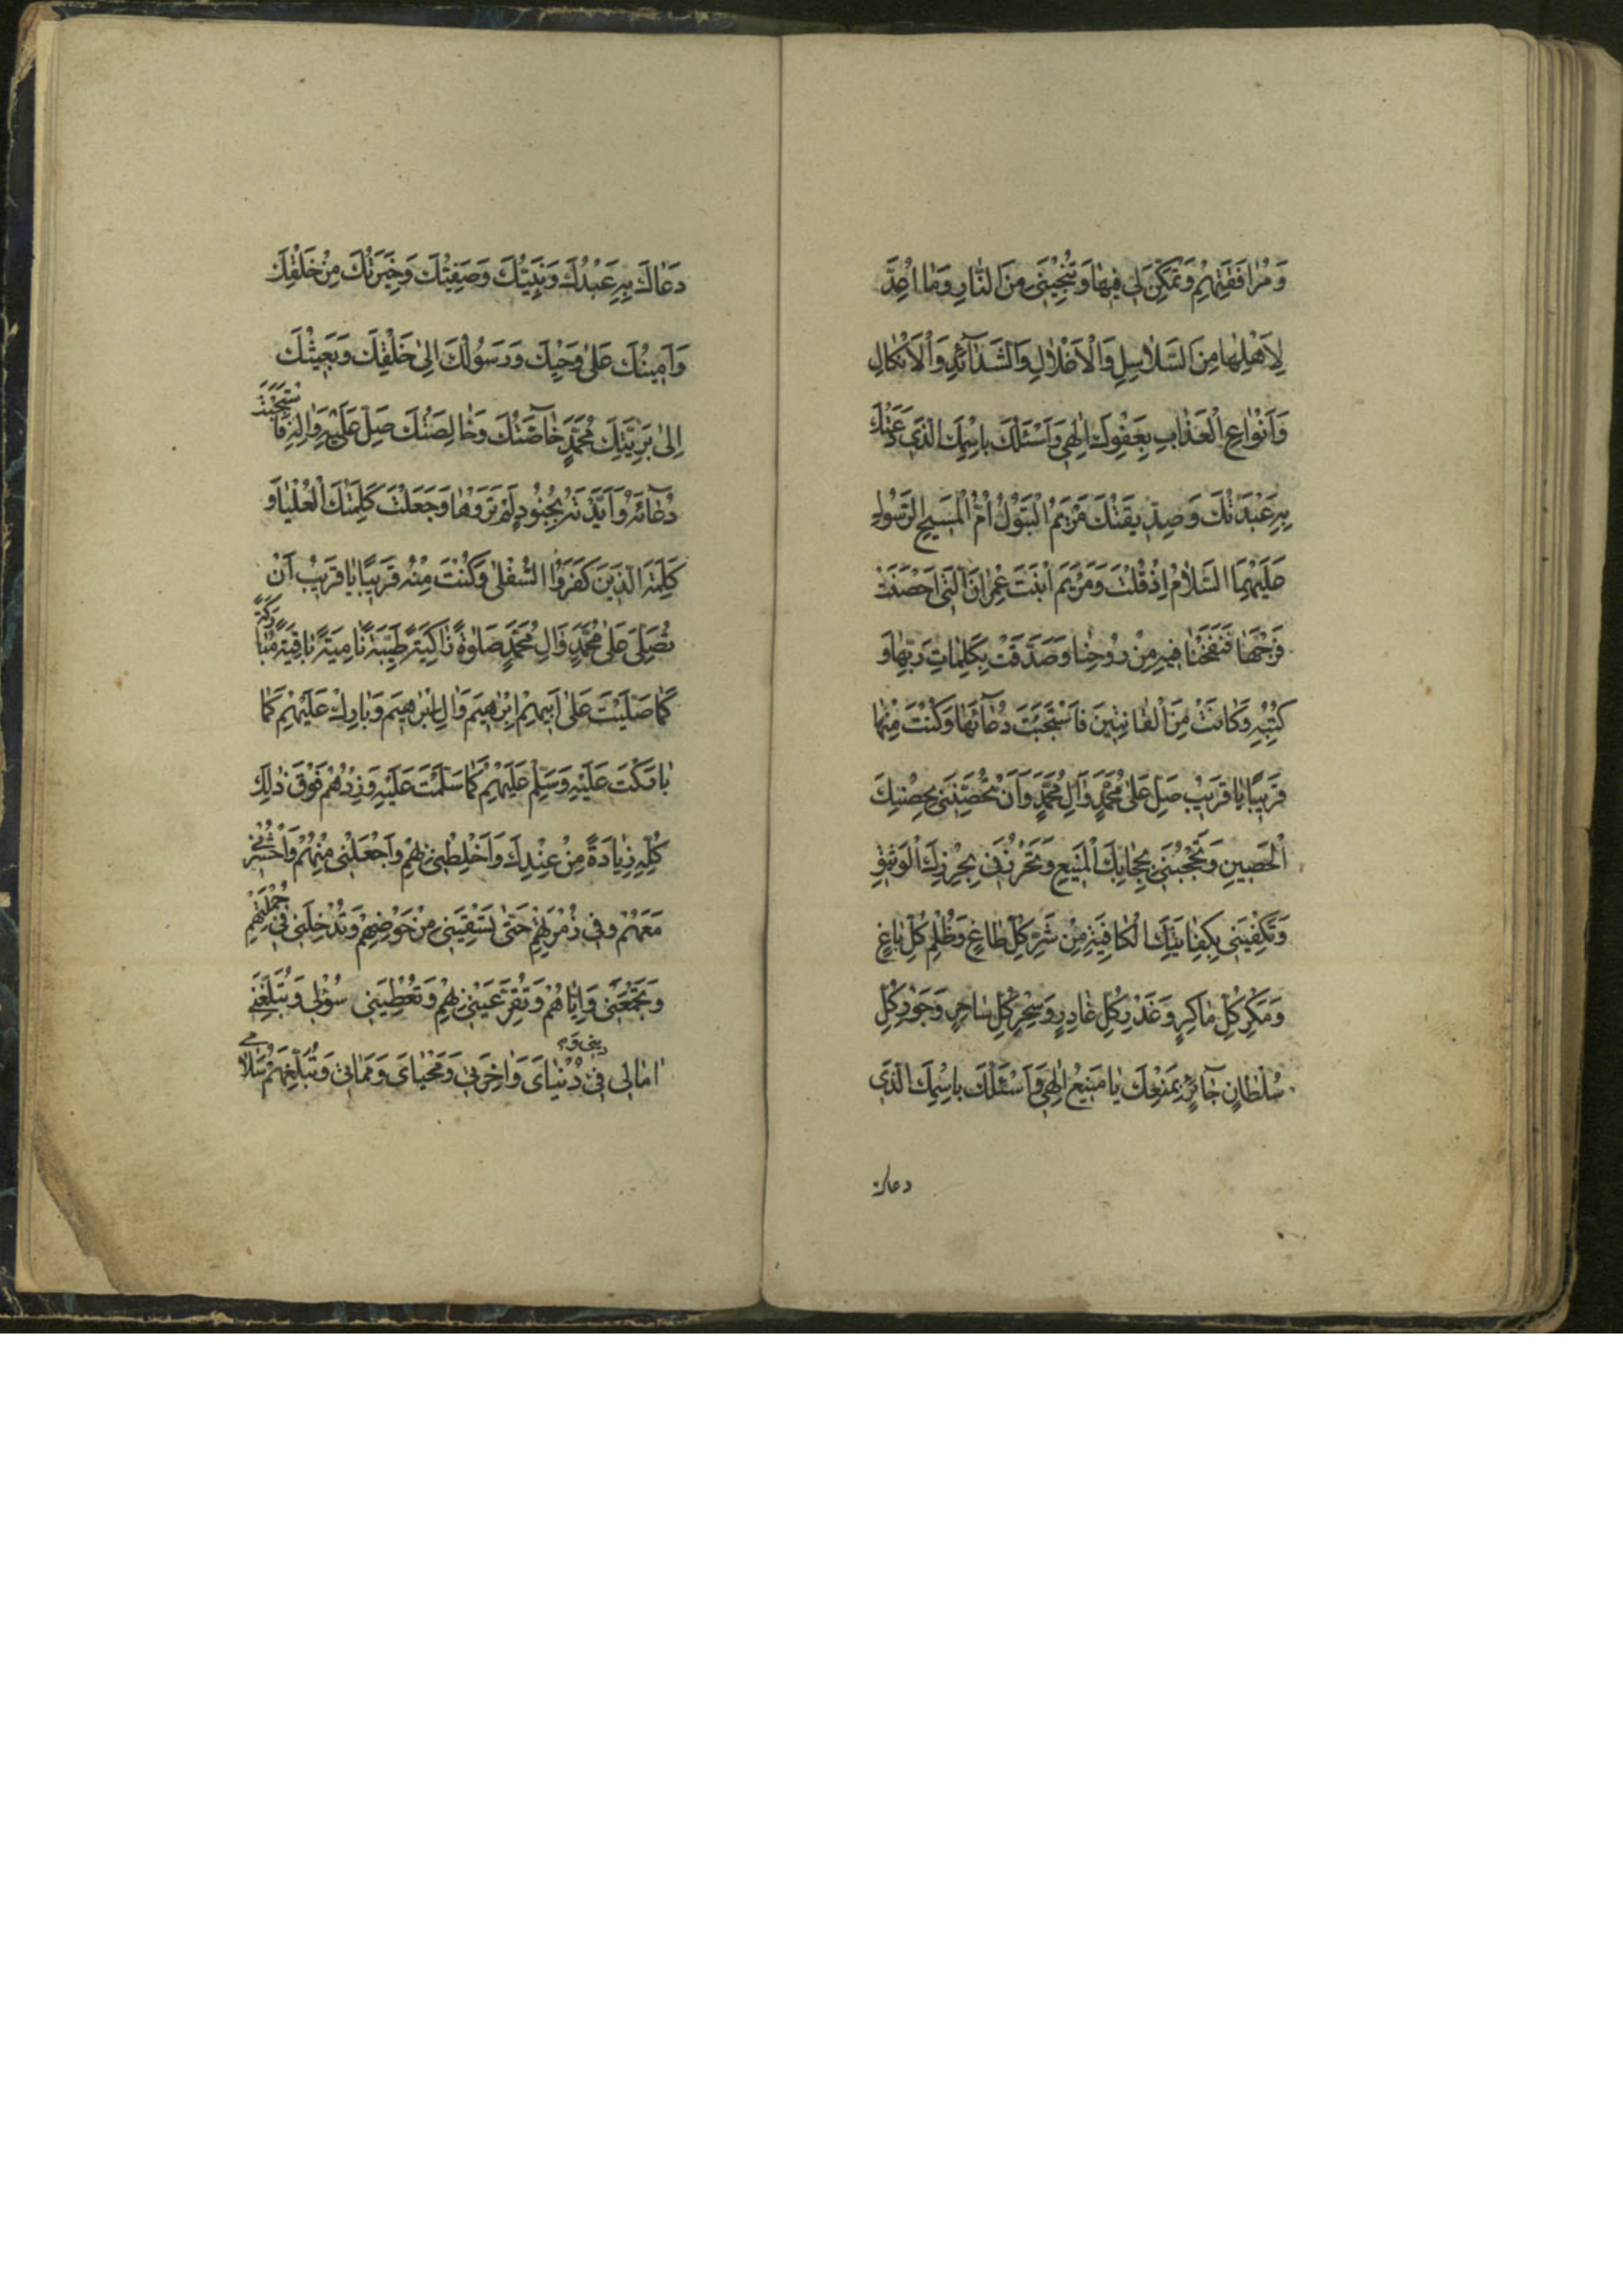 وَمُرٰافَقَتِهِمْ وَتُمَكِّنَ لِي فِيهٰا وَتُنْجِيَنِي مِنَ النّٰارِ وَمٰا اُعِدَّ
لِاَهْلِهٰا مِنَ السَّلٰاسِلِ وَالْاَغْلٰالِ وَالشَّدٰآئِدِ وَالْاَنْكٰالِ
وَاَنْوٰاعِ الْعَذٰابِ بِعَفْوِكَ اِلٰهِي وَاَسْئَلُكَ بِاسْمِكَ الَّذِي دَعَتْكَ
بِهِ عَبْدَتُكَ وَصِدِّيقَتُكَ مَرْيَمُ الْبَتُولُ اُمُّ الْمَسِيحِ الرَّسُولِ
عَلَيْهِمَا السَّلٰامُ اِذْ قُلْتَ وَمَرْيَمَ ابْنَتَ عِمْرٰانَ الَّتِي اَحْصَنَتْ
فَرْجَهٰا فَنَفَخْنٰا فِيهِ مِنْ رُوحِنٰا وَصَدَّقَتْ بِكَلِمٰاتِ رَبِّهٰا وَ
كُتُبِهِ وَكٰانَتْ مِنَ الْقٰانِتِينَ فَاسْتَجَبْتَ دُعٰآئَهٰا وَكُنْتَ مِنْهٰا
قَرِيبًا يٰا قَرِيبُ صَلِّ عَلىٰ مُحَمَّدٍ وَاٰلِ مُحَمَّدٍ وَاَنْ تُحَصِّنَنِي بِحِصْنِكَ
الْحَصِينِ وَتَحْجُبَنِي بِحِجٰابِكَ الْمَنِيعِ وَتَحْرُزَنِي بِحِرْزِكَ الْوَثِيقِ
وَتَكْفِيَنِي بِكِفٰايَتِكَ الْكٰافِيَةِ مِنْ شَرِّ كُلِّ طٰاغٍ وَظُلْمِ كُلِّ بٰاغٍ
وَمَكْرِ كُلِّ مٰاكِرٍ وَغَدْرِ كُلِّ غٰادِرٍ وَسِحْرِ كُلِّ سٰاحِرٍ وَجَوْرِ كُلِّ
سُلْطٰانٍ جٰآئِرٍ بِمَنْعِكَ يٰا مَنِيعُ اِلٰهِي وَاَسْئَلُكَ بِاسْمِكَ الَّذِي
دعاك
دَعٰاكَ بِهِ عَبْدُكَ وَنَبِيُّكَ وَصَفِيُّكَ وَخِيَرَتُكَ مِنْ خَلْقِكَ
وَاَمِينُكَ عَلىٰ وَحْيِكَ وَرَسُولُكَ اِلىٰ خَلْقِكَ وَبَعِيثُكَ
اِلىٰ بَرِيَّتِكَ مُحَمَّدٍ خٰآصَّتُكَ وَخٰالِصَتُكَ صَلِّ عَلَيْهِ وَاٰلِهِ فَاسْتَجَبْتَ
دُعٰآئَهُ وَاَيَّدْتَهُ بِجُنُودٍ لَمْ تَرَوْهٰا وَجَعَلْتَ كَلِمَتَكَ الْعُلْيٰا وَ
كَلِمَةَ الَّذِينَ كَفَرُوا السُّفْلىٰ وَكُنْتَ مِنْهُ قَرِيبًا يٰا قَرِيبُ اَنْ
تُصَلِّيَ عَلىٰ مُحَمَّدٍ وَاٰلِ مُحَمَّدٍ صَلٰوةً زٰاكِيَةً طَيِّبَةً نٰامِيَةً بٰاقِيَةً مُبٰارَكَةً
كَمٰا صَلَّيْتَ عَلىٰ اَبِيهِمْ اِبْرٰهِيمَ وَاٰلِ اِبْرٰهِيمَ وَبٰارِكْ عَلَيْهِمْ كَمٰا
بٰارَكْتَ عَلَيْهِ وَسَلِّمْ عَلَيْهِمْ كَمٰا سَلَّمْتَ عَلَيْهِ وَزِدْهُمْ فَوْقَ ذٰلِكَ
كُلِّهِ زِيٰادَةً مِنْ عِنْدِكَ وَاخْلِطْنِي بِهِمْ وَاجْعَلْنِي مِنْهُمْ وَاحْشُرْنِي
مَعَهُمْ وَفِي زُمْرَتِهِمْ حَتّىٰ تَسْقِيَنِي مِنْ حَوْضِهِمْ وَتُدْخِلَنِي فِي جُمْلَتِهِمْ
وَتَجْمَعَنِي وَاِيّٰاهُمْ وَتُقِرَّ عَيْنِي بِهِمْ وَتُعْطِيَنِي سُؤْلِي وَتُبَلِّغَنِي
اٰمٰالِي فِي دِينِي وَ دُنْيٰايَ وَاٰخِرَتِي وَمَحْيٰايَ وَمَمٰاتِي وَتُبَلِّغَهُمْ سَلٰامِي